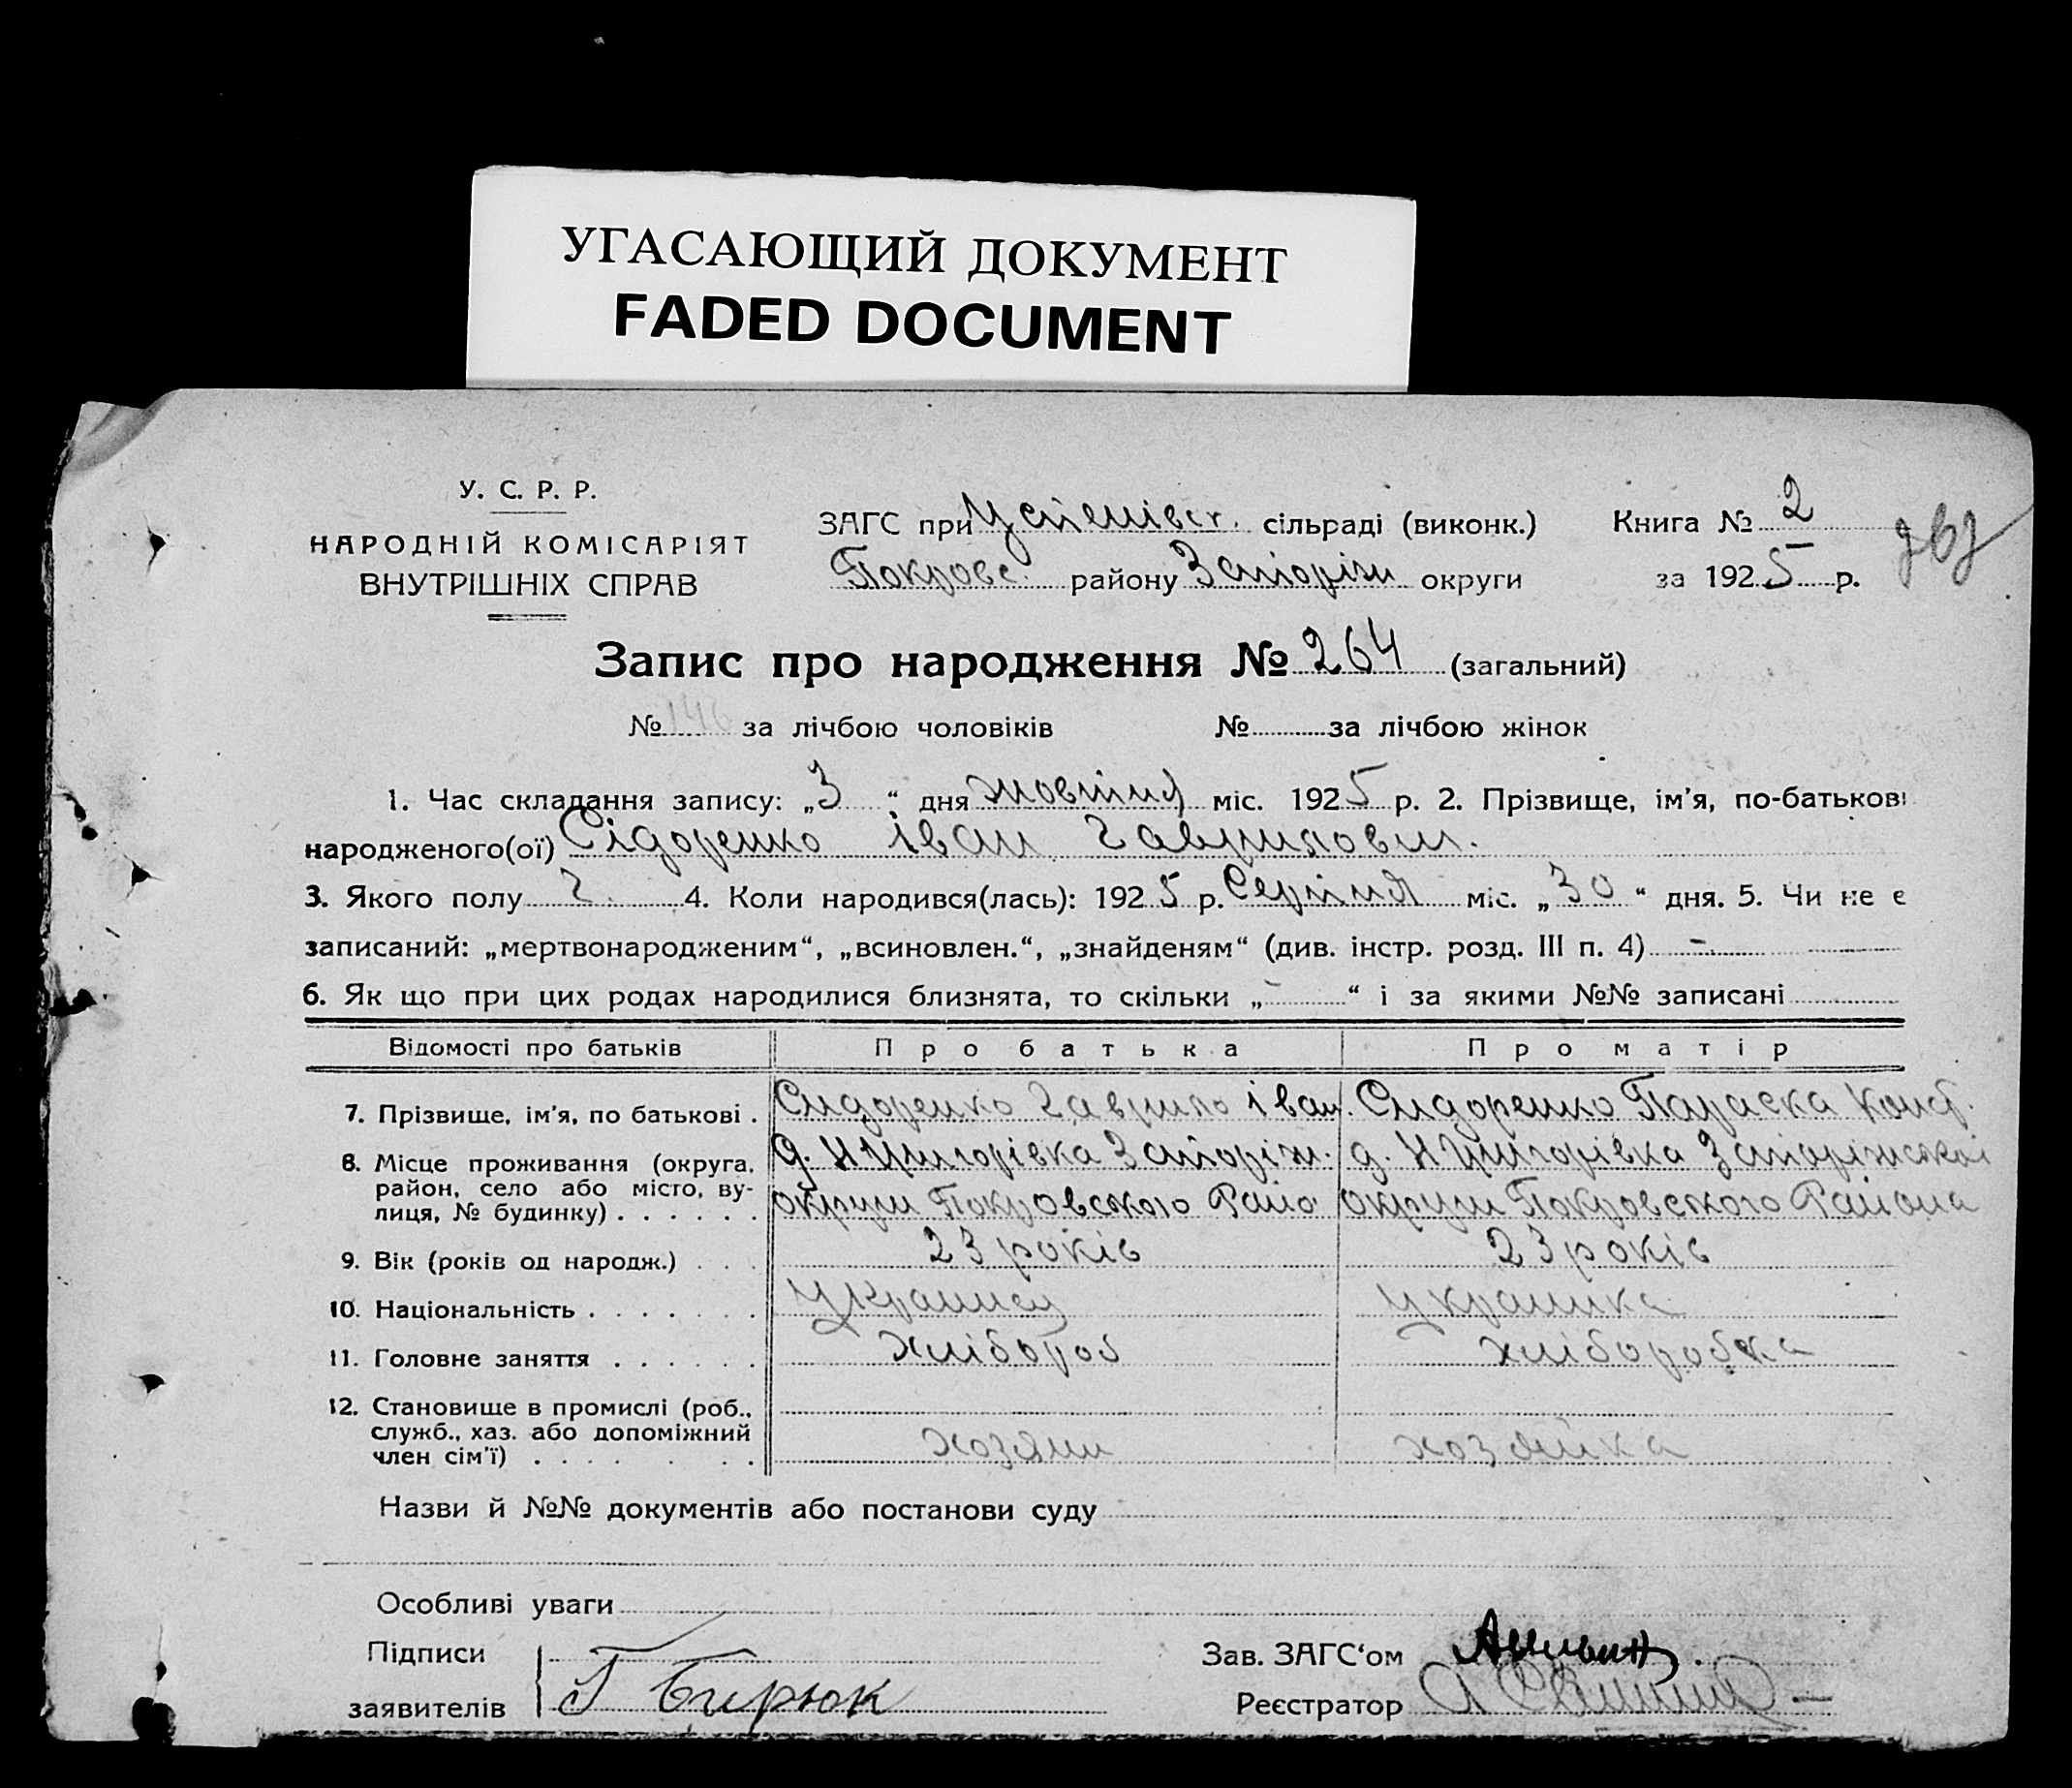 УГАСАЮЩИЙ ДОКУМЕНТ
FADED DOCUMENT
У. С. Р. Р.
НАРОДНІЙ КОМІСАРІЯТ
ВНУТРІШНІХ СПРАВ
ЗАГС при Успенівст. сільраді (виконк.)
Покровс. району Запоріж округи
Книга № 2
за 1925 р.
Запис про народження № 264 (загальний)
№ 146 за лічбою чоловіків № за лічбою жінок
1. Час складання запису: „3“ дня жовтня міс. 1925 р. 2. Прізвище, ім'я, по-батькові
народженого(ої) Сідоренко Іван Гаврилович.
3. Якого полу ч. 4. Коли народився(лась): 1925 р. Серпня міс. „30“ дня. 5. Чи не є
записаний: „мертвонародженим“, „всиновлен.“, „знайденям“ (див. інстр. розд. III п. 4) -
6. Як що при цих родах народилися близнята, то скільки „-“ і за якими №№ записані
Відомості про батьків Про батька Про матір
7. Прізвище, ім'я, по батькові . Сидоренко Гаврило Іван. Сидоренко Параска
8. Місце проживання (округа, д. Н Григорівка Запоріж. д. Н Григорівка Запоріжської
район, село або місто, ву-
лиця, № будинку) . . . . . . округи Покровського Райо округи Покровського Района
9. Вік (років од народж.) . . . 23 років 23 років
10. Національність . . . . . . . Украинец Украинка
11. Головне заняття . . . . . . хлібороб хліборобка
12. Становище в промислі (роб.,
служб., хаз. або допоміжний
член сім'ї) . . . . . . . хозяин хозяйка
Назви й №№ документів або постанови суду
Особливі уваги
Підписи
заявителів
Г Бирюк
Зав. ЗАГС'ом
Реєстратор